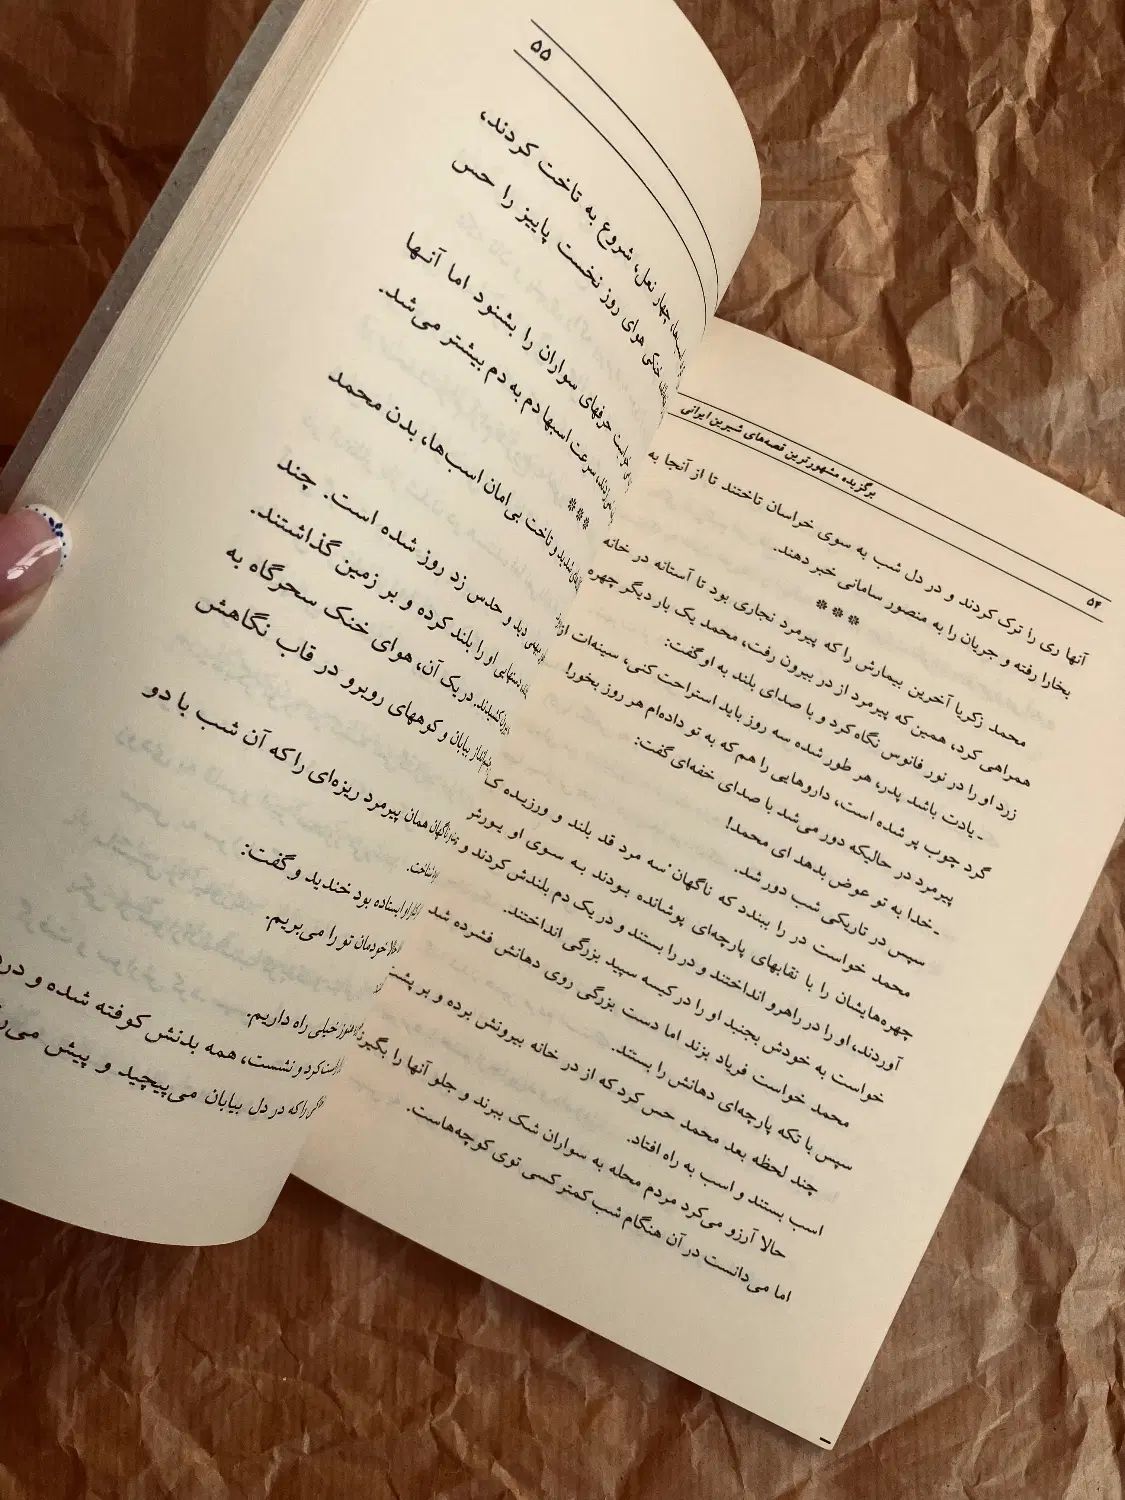 ۵۴
برگزیده مشهورترین قصه‌های شیرین ایرانی
آنها ری را ترک کردند و در دل شب به سوی خراسان تاختند تا از آنجا به
بخارا رفته و جریان را به منصور سامانی خبر دهند.
***
محمد زکریا آخرین بیمارش را که پیرمرد نجاری بود تا آستانه در خانه
همراهی کرد، همین که پیرمرد از در بیرون رفت، محمد یک بار دیگر چهره
زرد او را در نور فانوس نگاه کرد و با صدای بلند به او گفت:
ـ یادت باشد پدر، هر طور شده سه روز باید استراحت کنی، سینه‌ات از
گرد چوب پر شده است، داروهایی را هم که به تو داده‌ام هر روز بخور!
پیرمرد در حالیکه دور می‌شد با صدای خفه‌ای گفت:
ـ خدا به تو عوض بدهد ای محمد!
سپس در تاریکی شب دور شد.
محمد خواست در را ببندد که ناگهان سه مرد قد بلند و ورزیده که
چهره‌هایشان را با نقابهای پارچه‌ای پوشانده بودند به سوی او یورش
آوردند، او را در راهرو انداختند و در را بستند و در یک دم بلندش کردند و
خواست به خودش بجنبد او را در کیسه سپید بزرگی انداختند.
محمد خواست فریاد بزند اما دست بزرگی روی دهانش فشرده شد
سپس با تکه پارچه‌ای دهانش را بستند.
چند لحظه بعد محمد حس کرد که از در خانه بیرونش برده و بر پشت
اسب بستند و اسب به راه افتاد.
حالا آرزو می‌کرد مردم محله به سواران شک ببرند و جلو آنها را بگیرند
اما می‌دانست در آن هنگام شب کمتر کسی توی کوچه‌هاست.
۵۵
چهار نعل، شروع به تاخت کردند،
خنکی هوای روز نخست پاییز را حس
حرفهای سواران را بشنود اما آنها
سرعت اسبها دم به دم بیشتر می‌شد.
***
و تاخت بی‌امان اسب‌ها، بدن محمد
دید و حدس زد روز شده است. چند
دستهایی او را بلند کرده و بر زمین گذاشتند.
در یک آن، هوای خنک سحرگاه به
بیابان و کوههای روبرو در قاب نگاهش
ناگهان همان پیرمرد ریزه‌ای را که آن شب با دو
او ایستاده بود خندید و گفت:
خودمان تو را می‌بریم.
خیلی راه داریم.
کرد و نشست، همه بدنش کوفته شده و درد
را که در دل بیابان می‌پیچید و پیش